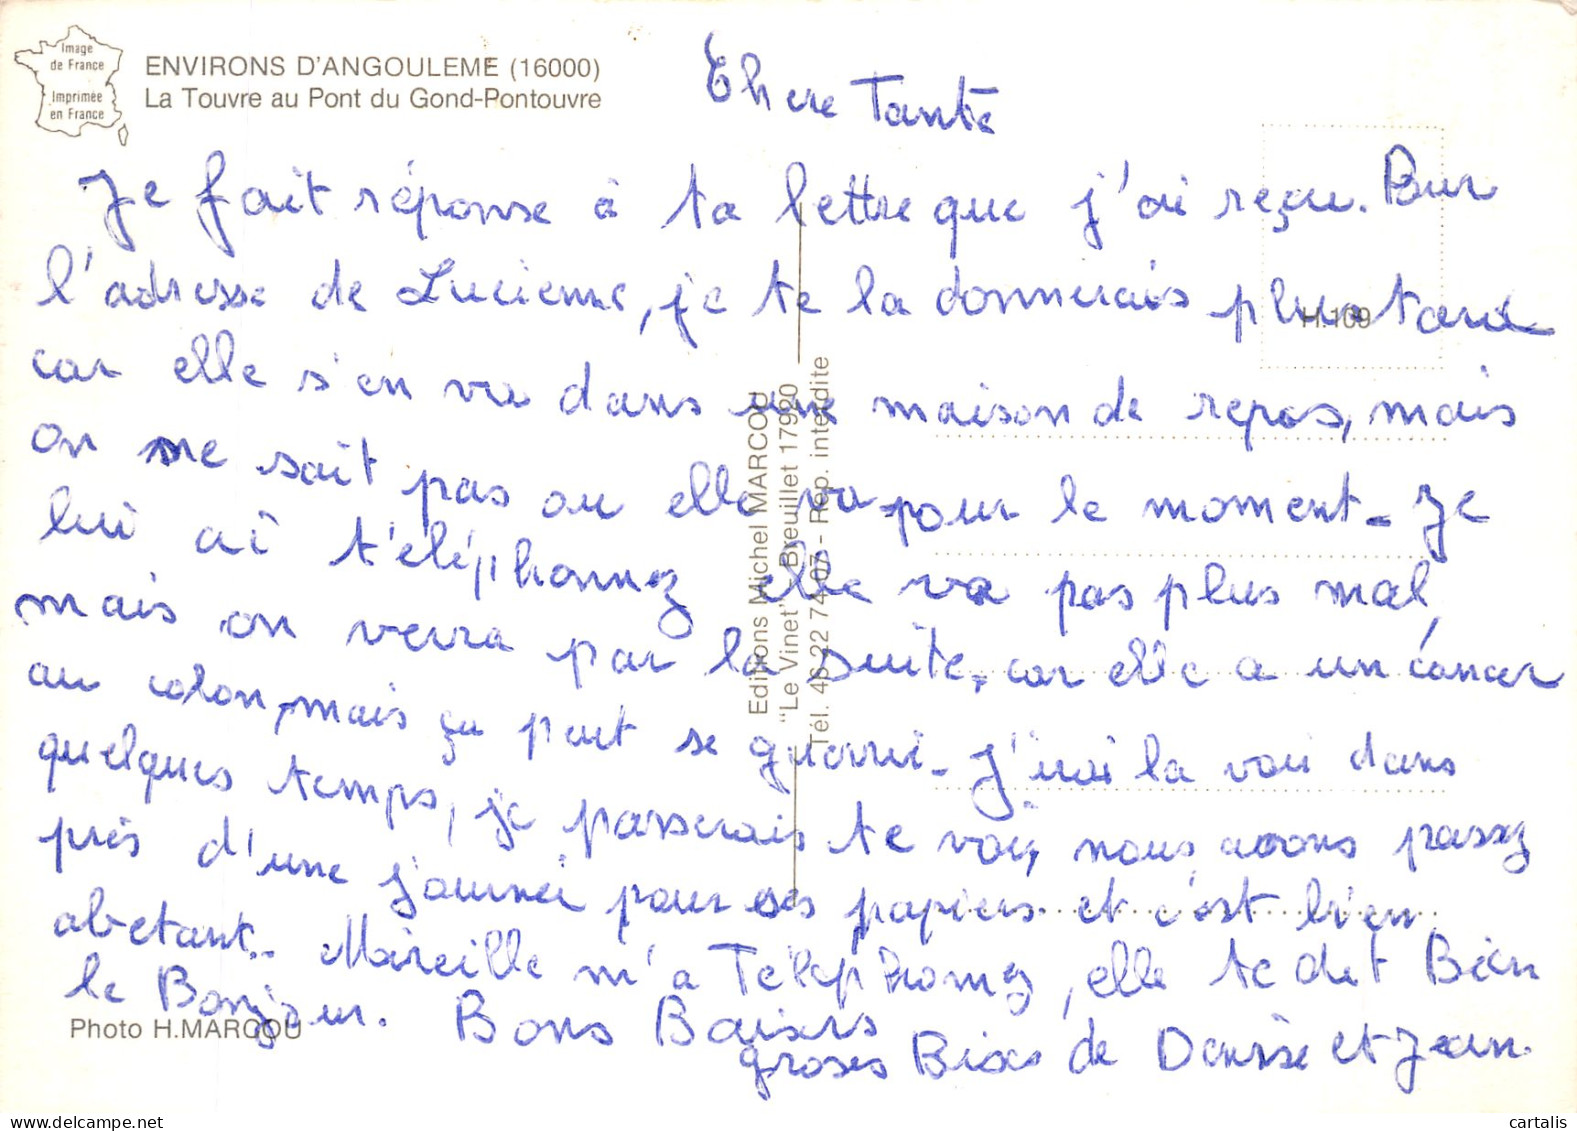 Image
de France
Imprimée
en France
ENVIRONS D'ANGOULEME (16000)
La Touvre au Pont du Gond-Pontouvre
Chere Tante
Je fait réponse à ta lettre que j'ai reçu. Pour
l'adresse de Lucienne, je te la donnerais plus tard
car elle s'en va dans une maison de repos, mais
on ne sait pas ou elle va pour le moment. Je
lui ai t'éléphonnez elle va pas plus mal,
mais on verra par la suite, car elle a un cancer
au colon, mais ça peut se guerri. J'irai la voir dans
quelques temps, je passerais te voir, nous avons passez
près d'une journéé pour ses papiers et c'est bien
abetant.. Mireille m'a Téléphonez, elle te dit Bien
le Bonjour. Bons Baisers
groses Bises de Denise et Jean.
Photo H.MARCOU
H.109
Editions Michel MARCOU
"Le Vinet" Breuillet 17920
Tél. 46 22 74 07 - Rep. interdite
cartalis